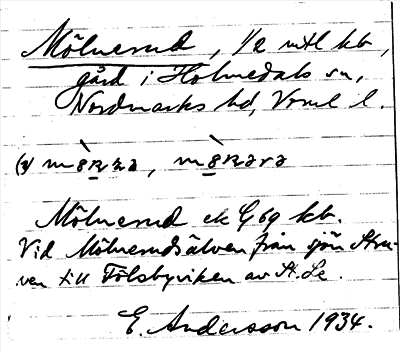 Mölnerud, 1/2 mtl kb,
gård i Holmedals sn,
Nordmarks hd, Vrml l.
Mölnerud ek G69 kb.
Vid Mölnerudsälven från sjön
ven till Fölsbyviken av St. Le.
E. Andersson 1934.